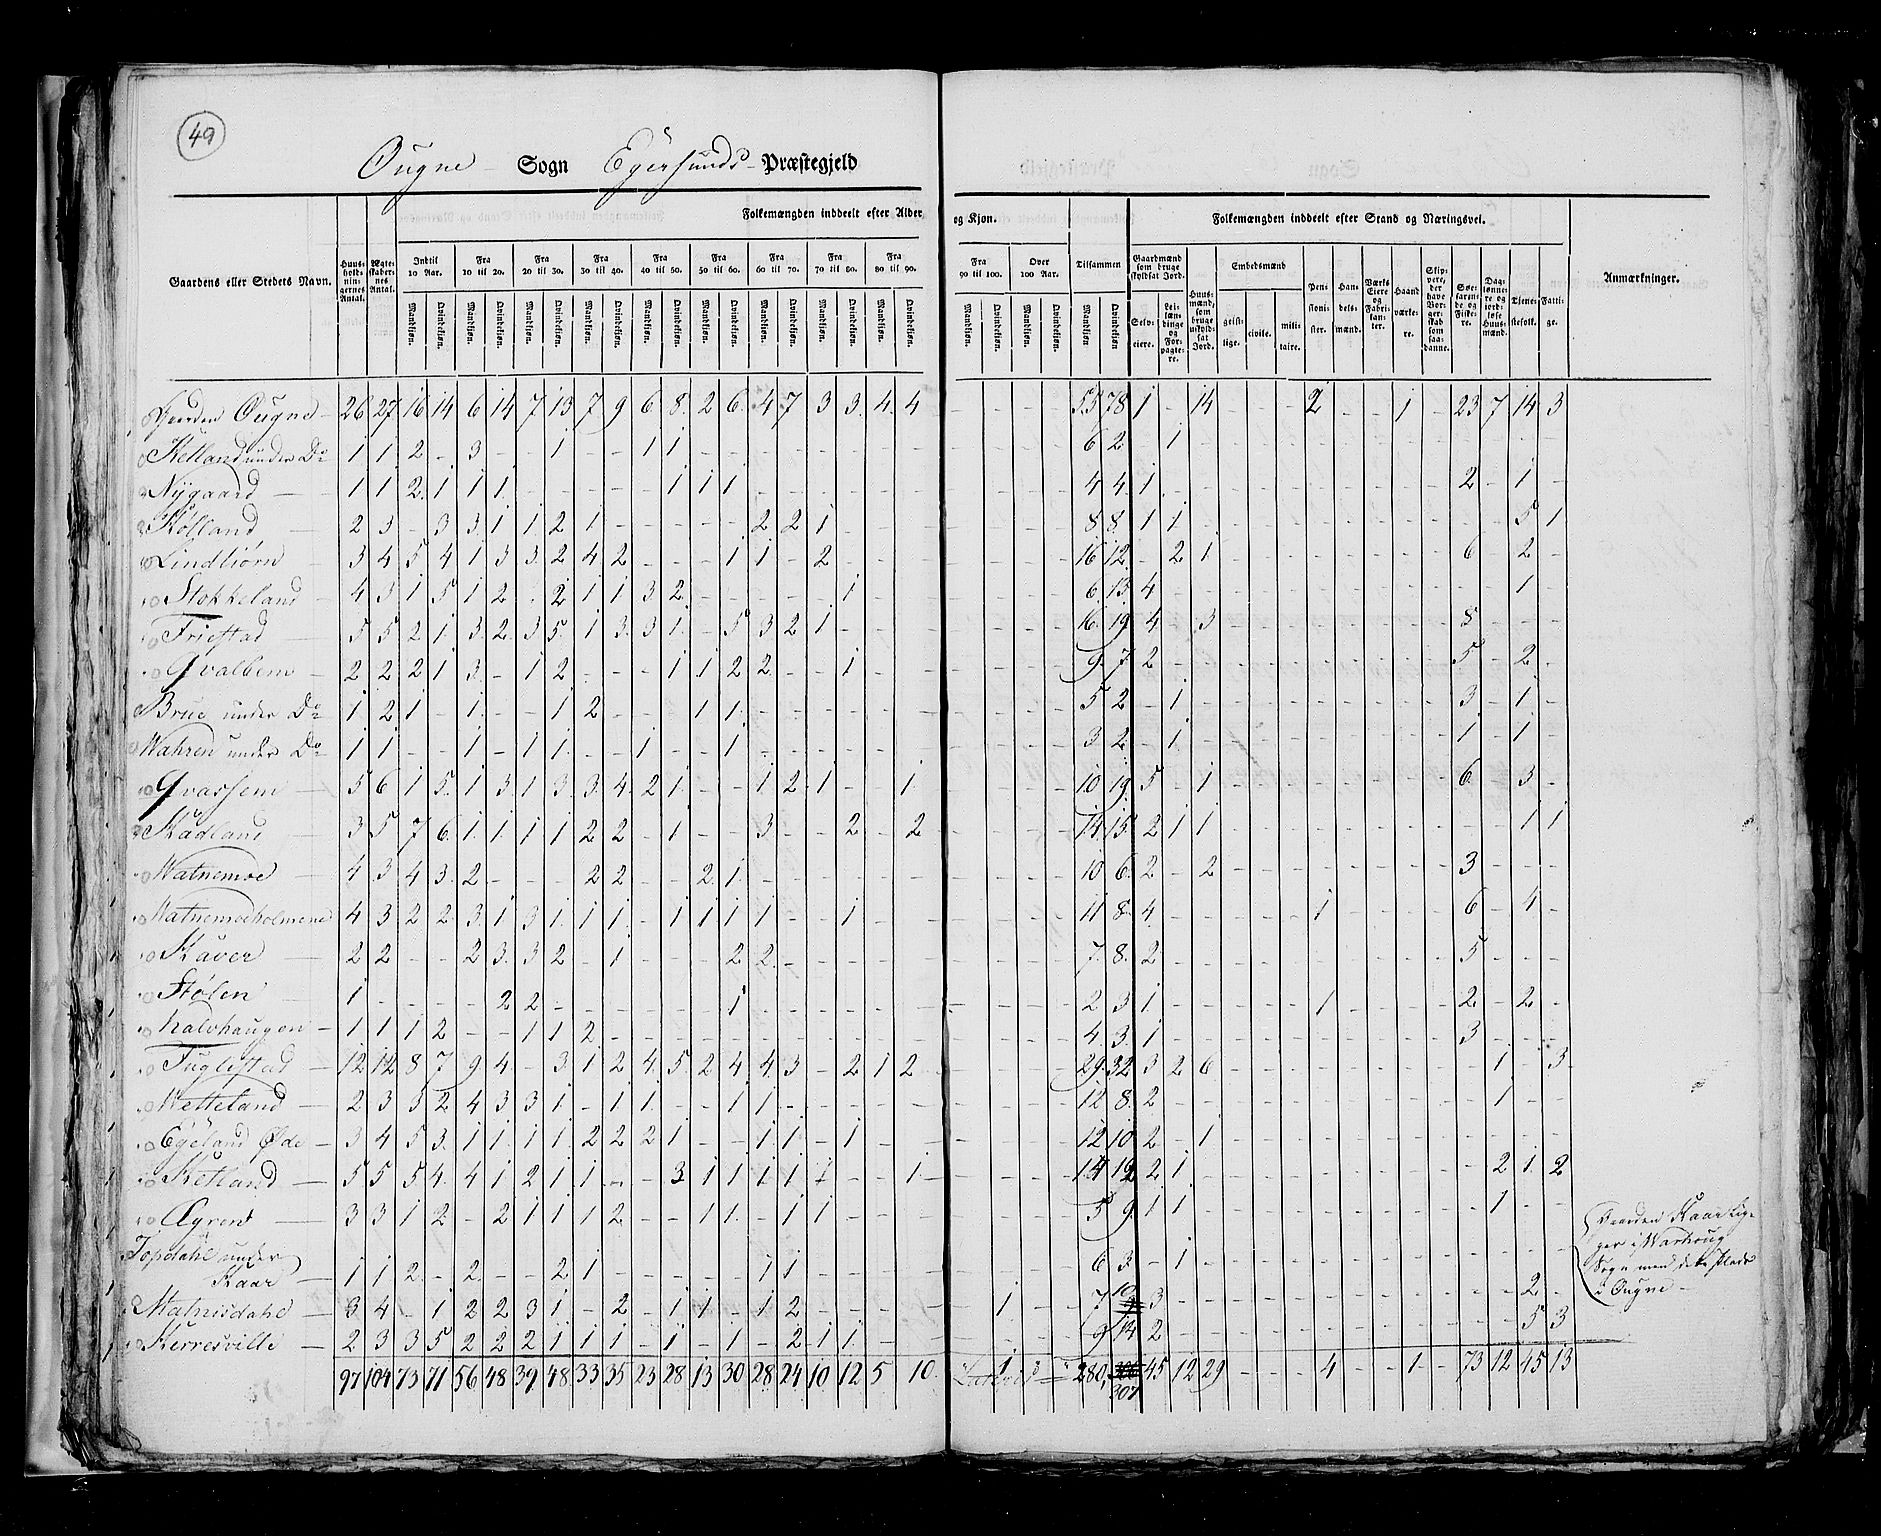 49
Ougne - Sogn Egersunds- Præstegjeld
Gaardens eller Stedets Navn. Huusholdningernes Antal. Ægteskabernes Antal. Folkemængden inddeelt efter Alder og Kjøn. Tilsammen Folkemængden inddeelt efter Stand og Næringsvei. Anmærkninger.
Indtil 10 Aar. Fra 10 til 20. Fra 20 til 30. Fra 30 til 40. Fra 40 til 50. Fra 50 til 60. Fra 60 til 70. Fra 70 til 80. Fra 80 til 90. Fra 90 til 100. Over 100 Aar.
Mandkjøn. Qvindekjøn. Mandkjøn. Qvindekjøn. Mandkjøn. Qvindekjøn. Mandkjøn. Qvindekjøn. Mandkjøn. Qvindekjøn. Mandkjøn. Qvindekjøn. Mandkjøn. Qvindekjøn. Mandkjøn. Qvindekjøn. Mandkjøn. Qvindekjøn. Mandkjøn. Qvindekjøn. Mandkjøn. Qvindekjøn. Mandkjøn Qvindekjøn
Gaardmænd som bruge skyldsat Jord. Selveiere. Leilændinge og Forpagtere. Huusmænd, som bruge uskyldsat Jord. Embedsmænd geistlige. civile. militaire. Pensionister. Handelsmænd. Værks Eiere og Fabrikanter. Haandværkere. Skippere, der have Borgerskab som saadanne. Søefarende og Fiskere. Daglønnere og jordløse Huusmænd. Tjenestefolk. Fattige.
Gaarden Ougne - 26 27 16 14 6 14 7 13 7 9 6 8 2 6 4 7 3 3 4 4 - - - - 55 78 1 - 14 - - - 2 - - 1 - 23 7 14 3
Ketland under Do 1 1 2 - 3 - - 1 - - 1 1 - - - - - - - - - - - - 6 2 - 1 - - - - - - - - - - - - -
Nygaard 1 1 2 1 1 1 - - - - - 1 1 1 - - - - - - - - - - 4 4 1 - - - - - - - - - - 2 - 1 -
Kolland 2 3 - 3 3 1 1 2 1 - - - - - 2 2 1 - - - - - - - 8 8 1 1 - - - - - - - - - - - 5 1
Lindtiörn 3 4 5 4 1 3 3 2 4 2 - - - 1 1 - 2 - - - - - - - 16 12 - 2 1 - - - - - - - - 6 - 2 -
Stokkeland 4 3 1 5 1 2 - 2 1 1 3 2 - - - - - 1 - - - - - - 6 13 4 - - - - - - - - - - - - 1 -
Friestad 5 5 2 1 3 2 3 5 1 3 3 1 - 5 3 2 1 - - - - - - - 16 19 4 - 3 - - - - - - - - 8 - - -
Qvalbem 2 2 2 1 3 - 1 2 - - - 1 1 2 2 - - 1 - - - - - - 9 7 2 - - - - - - - - - - 5 - 2 -
Brue under Do 1 2 1 - 1 - - 1 2 - - - 1 1 - - - - - - - - - - 5 2 - 1 - - - - - - - - - 3 - 1 -
Wahren under Do 1 1 - - 1 - 1 1 - - 1 - - 1 - - - - - - - - - - 3 2 - 1 - - - - - - - - - 1 - 1 -
Qvassem 5 6 1 5 1 3 1 3 3 4 2 1 - - 1 2 1 - - 1 - - - - 10 19 5 - 1 - - - - - - - - 6 - 3 -
Kadland 3 5 7 6 1 1 1 1 2 2 - 1 - - 3 - - 2 - 2 - - - - 14 15 2 1 1 - - - - - - - - - - 1 1
Watnemoe 4 3 4 3 2 - - - 2 2 - - 2 1 - - - - - - - - - - 10 6 2 - 2 - - - - - - - - 3 - - -
Watnemoeholmene 4 3 2 2 3 1 3 1 1 1 - 1 1 1 1 - - 1 - - - - - - 11 8 4 - - - - - 1 - - - - 6 - 4 -
Kaver 2 2 - - 2 3 3 2 - 1 - - - 2 2 - - - - - - - - - 7 8 2 - - - - - - - - - - 5 - - -
Stølen 1 - - - - 2 2 - - - - - - 1 - - - - - - - - - - 2 3 1 - - - - - 1 - - - - 2 - 2 -
Kalvhaugen - 1 1 1 2 - - 1 1 2 - - - - - - - - - - - - - - - 4 3 1 - - - - - - - - - - 3 - - -
Fuglestad 12 12 8 7 9 4 - 3 1 2 4 5 2 4 4 3 - 2 1 2 - - - - 29 32 3 2 6 - - - - - - - - - 1 - 3
Wetteland 2 3 3 2 4 3 3 1 - 1 1 - - 1 1 - - - - - - - - - 12 8 2 - - - - - - - - - - - 1 - -
Egeland Øde - 3 4 5 3 1 1 1 1 2 2 2 1 - - 1 1 - 1 - - - - - - 12 10 2 - 1 - - - - - - - - - - - -
Ketland 5 5 5 4 4 1 2 1 1 - - 3 1 1 1 1 1 - - 1 - - - - 14 12 2 1 - - - - - - - - - - 2 1 2
Øgrend 3 3 1 2 - 2 1 1 1 2 - - 1 1 - 1 1 - - - - - - - 5 9 1 1 - - - - - - - - - - 1 - -
Topdahl under
Kaar 1 1 2 - 2 - - 2 1 - - - - - 1 1 - - - - - - - - 6 3 - 1 - - - - - - - - - - - - -
Matnisdahl 3 4 - 1 2 2 3 1 - 2 - 1 1 - 1 2 - - - - - 1 - - 7 10 3 - - - - - - - - - - - - 2 -
Kerresville 2 3 3 5 2 2 2 1 1 1 - 1 - 1 - 2 1 1 - - - - - - 9 14 2 - - - - - - - - - - - - 5 3
97 104 73 71 56 48 39 48 33 35 23 28 13 30 28 24 10 12 5 10 1 280 306 307 45 12 29 - - - 4 - - 1 - 73 12 45 13
Gaarden Kaar lig-
ger i Warhoug
Sogn men dets Plads
i Ougne -